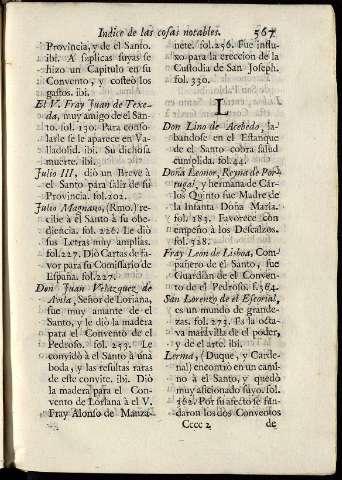 Indice de las cosas notables. 567
Provincia, y de el Santo.
ibi. A suplicas suyas se
hizo un Capitulo en su
Convento, y costeò los
gastos. ibi.
El V. Fray Juan de Texe-
da, muy amigo de el San-
to. fol. 130. Para conso-
larle se le aparece en Va-
lladolid. ibi. Su dichosa
muerte. ibi.
Julio III, diò un Breve à
el Santo para salir de su
Provincia. fol. 202.
Julio Magnano, (Rmo.) re-
cibie à el Santo à su obe-
diencia. fol. 226. Le diò
sus Letras muy amplias.
fol. 227. Diò Cartas de fa-
vor para su Comissario de
España. fol. 227.
Don Juan Velazquez de
Avila, Señor de Loriana,
fue muy amante de el
Santo, y le diò la madera
para el Convento de el
Pedroso. fol. 253. Le
convidò à el Santo à una
boda, y las resultas raras
de este convite. ibi. Diò
la madera para el Con-
vento de Loriana à el V.
Fray Alonso de Manza-
nete. fol. 256. Fue influ-
xo para la ereccion de la
Custodia de San Joseph.
fol. 330.
L
Don Lino de Acebedo, la-
bandose en el Estanque
de el Santo cobra salud
cumplida. fol. 44.
Doña Leonor, Reyna de Por-
tugal, y hermana de Car-
los Quinto fue Madre de
la Infanta Doña Maria.
fol. 283. Favorece con
empeño à los Descalzos.
fol. 328.
Fray Leon de Lisboa, Com-
pañero de el Santo, fue
Guardian de el Conven-
to de el Pedroso. f. 364.
San Lorenzo de el Escorial,
es un mundo de grande-
zas. fol. 273. Es la octa-
va maravilla de el poder,
y de el arte. ibi.
Lerma, (Duque, y Carde-
nal) encontrò en un cami-
no à el Santo, y quedò
muy aficionado suyo. fol.
162. Por su afecto se fun-
daron los dos Conventos
Cccc 2 de